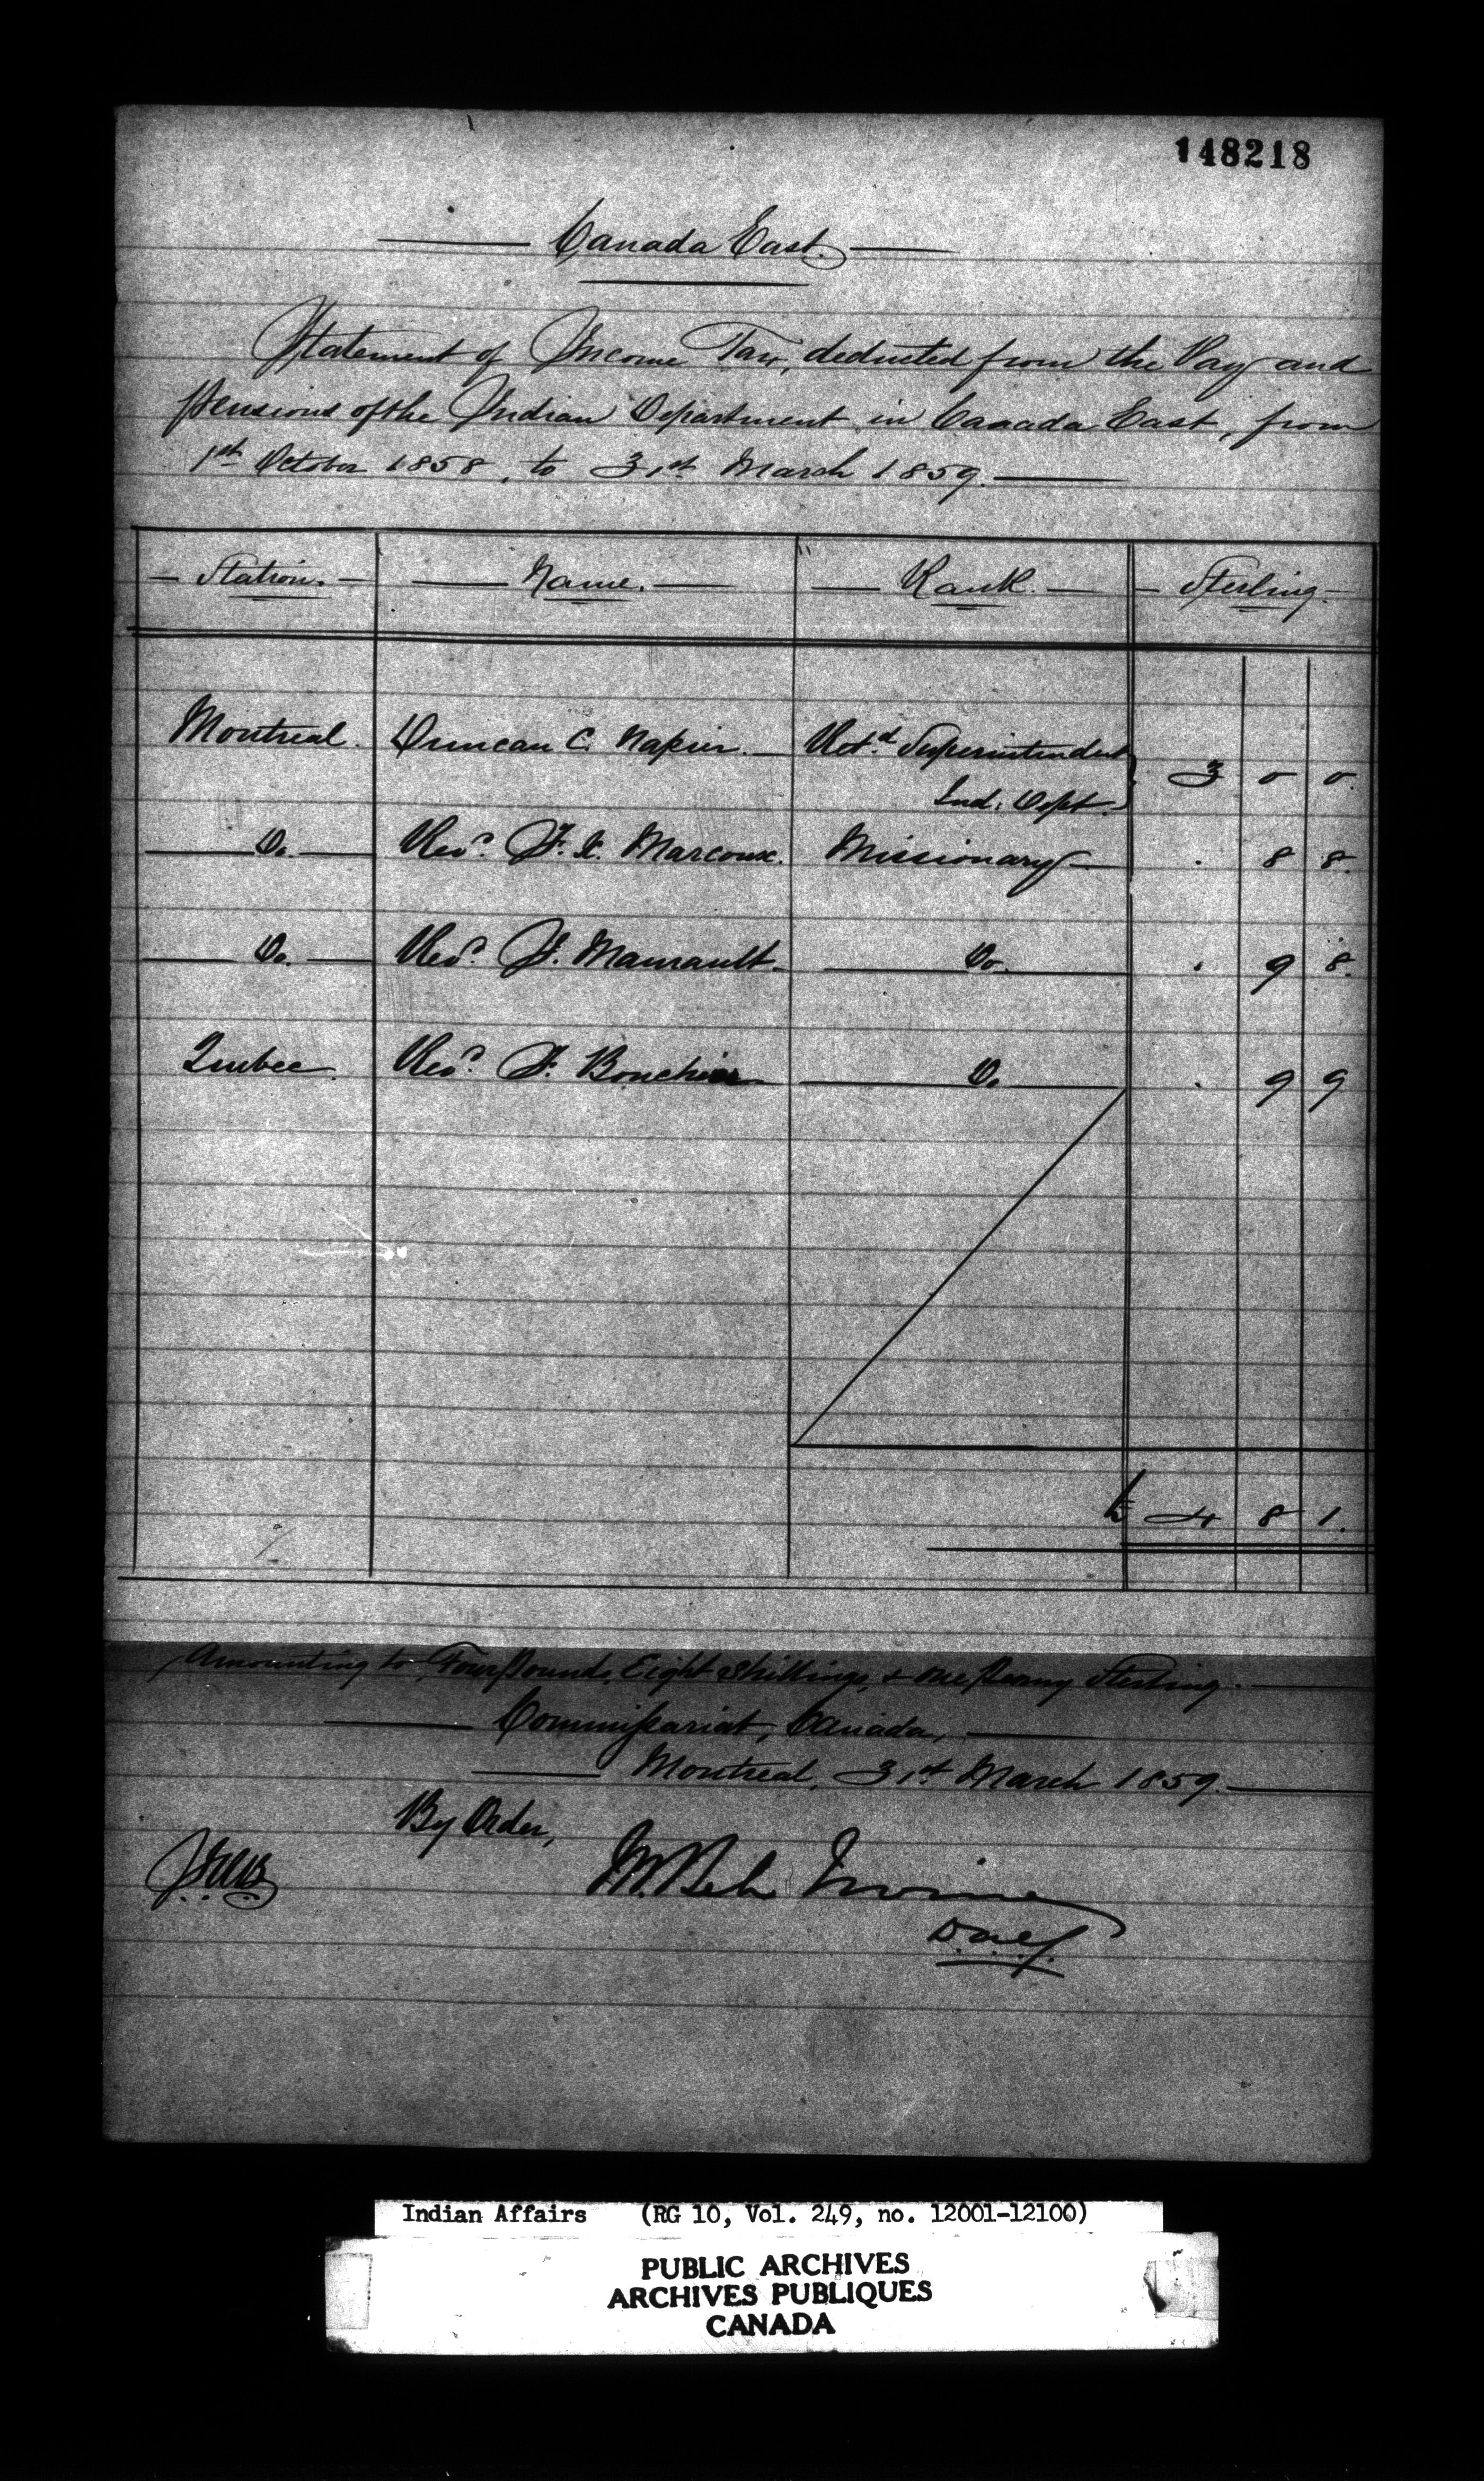 148218
Canada East.
Statement of Income Tax, deducted from the Pay and
Pensions of the Indian Department in Canada East, from
1st October 1858, to 31st March 1859.
Station. Name. Rank. Sterling.
Montreal. Duncan C. Napier. Retd. Superintendent
Ind. Dept. 3 0 0.
Do. Revd. F. X. Marcoux. Missionary . 8 8.
Do. Revd. J. Maurault. Do. . 9 8.
Quebec. Revd. F. Boucher Do . 9 9
£ 4 8 1.
Amounting to Four Pounds, Eight Shillings, & one Penny Sterling.
Commissariat, Canada,
Montreal, 31st March 1859.
By Order,
Irvine
Indian Affairs (RG 10, Vol. 249, no. 12001-12100)
PUBLIC ARCHIVES
ARCHIVES PUBLIQUES
CANADA